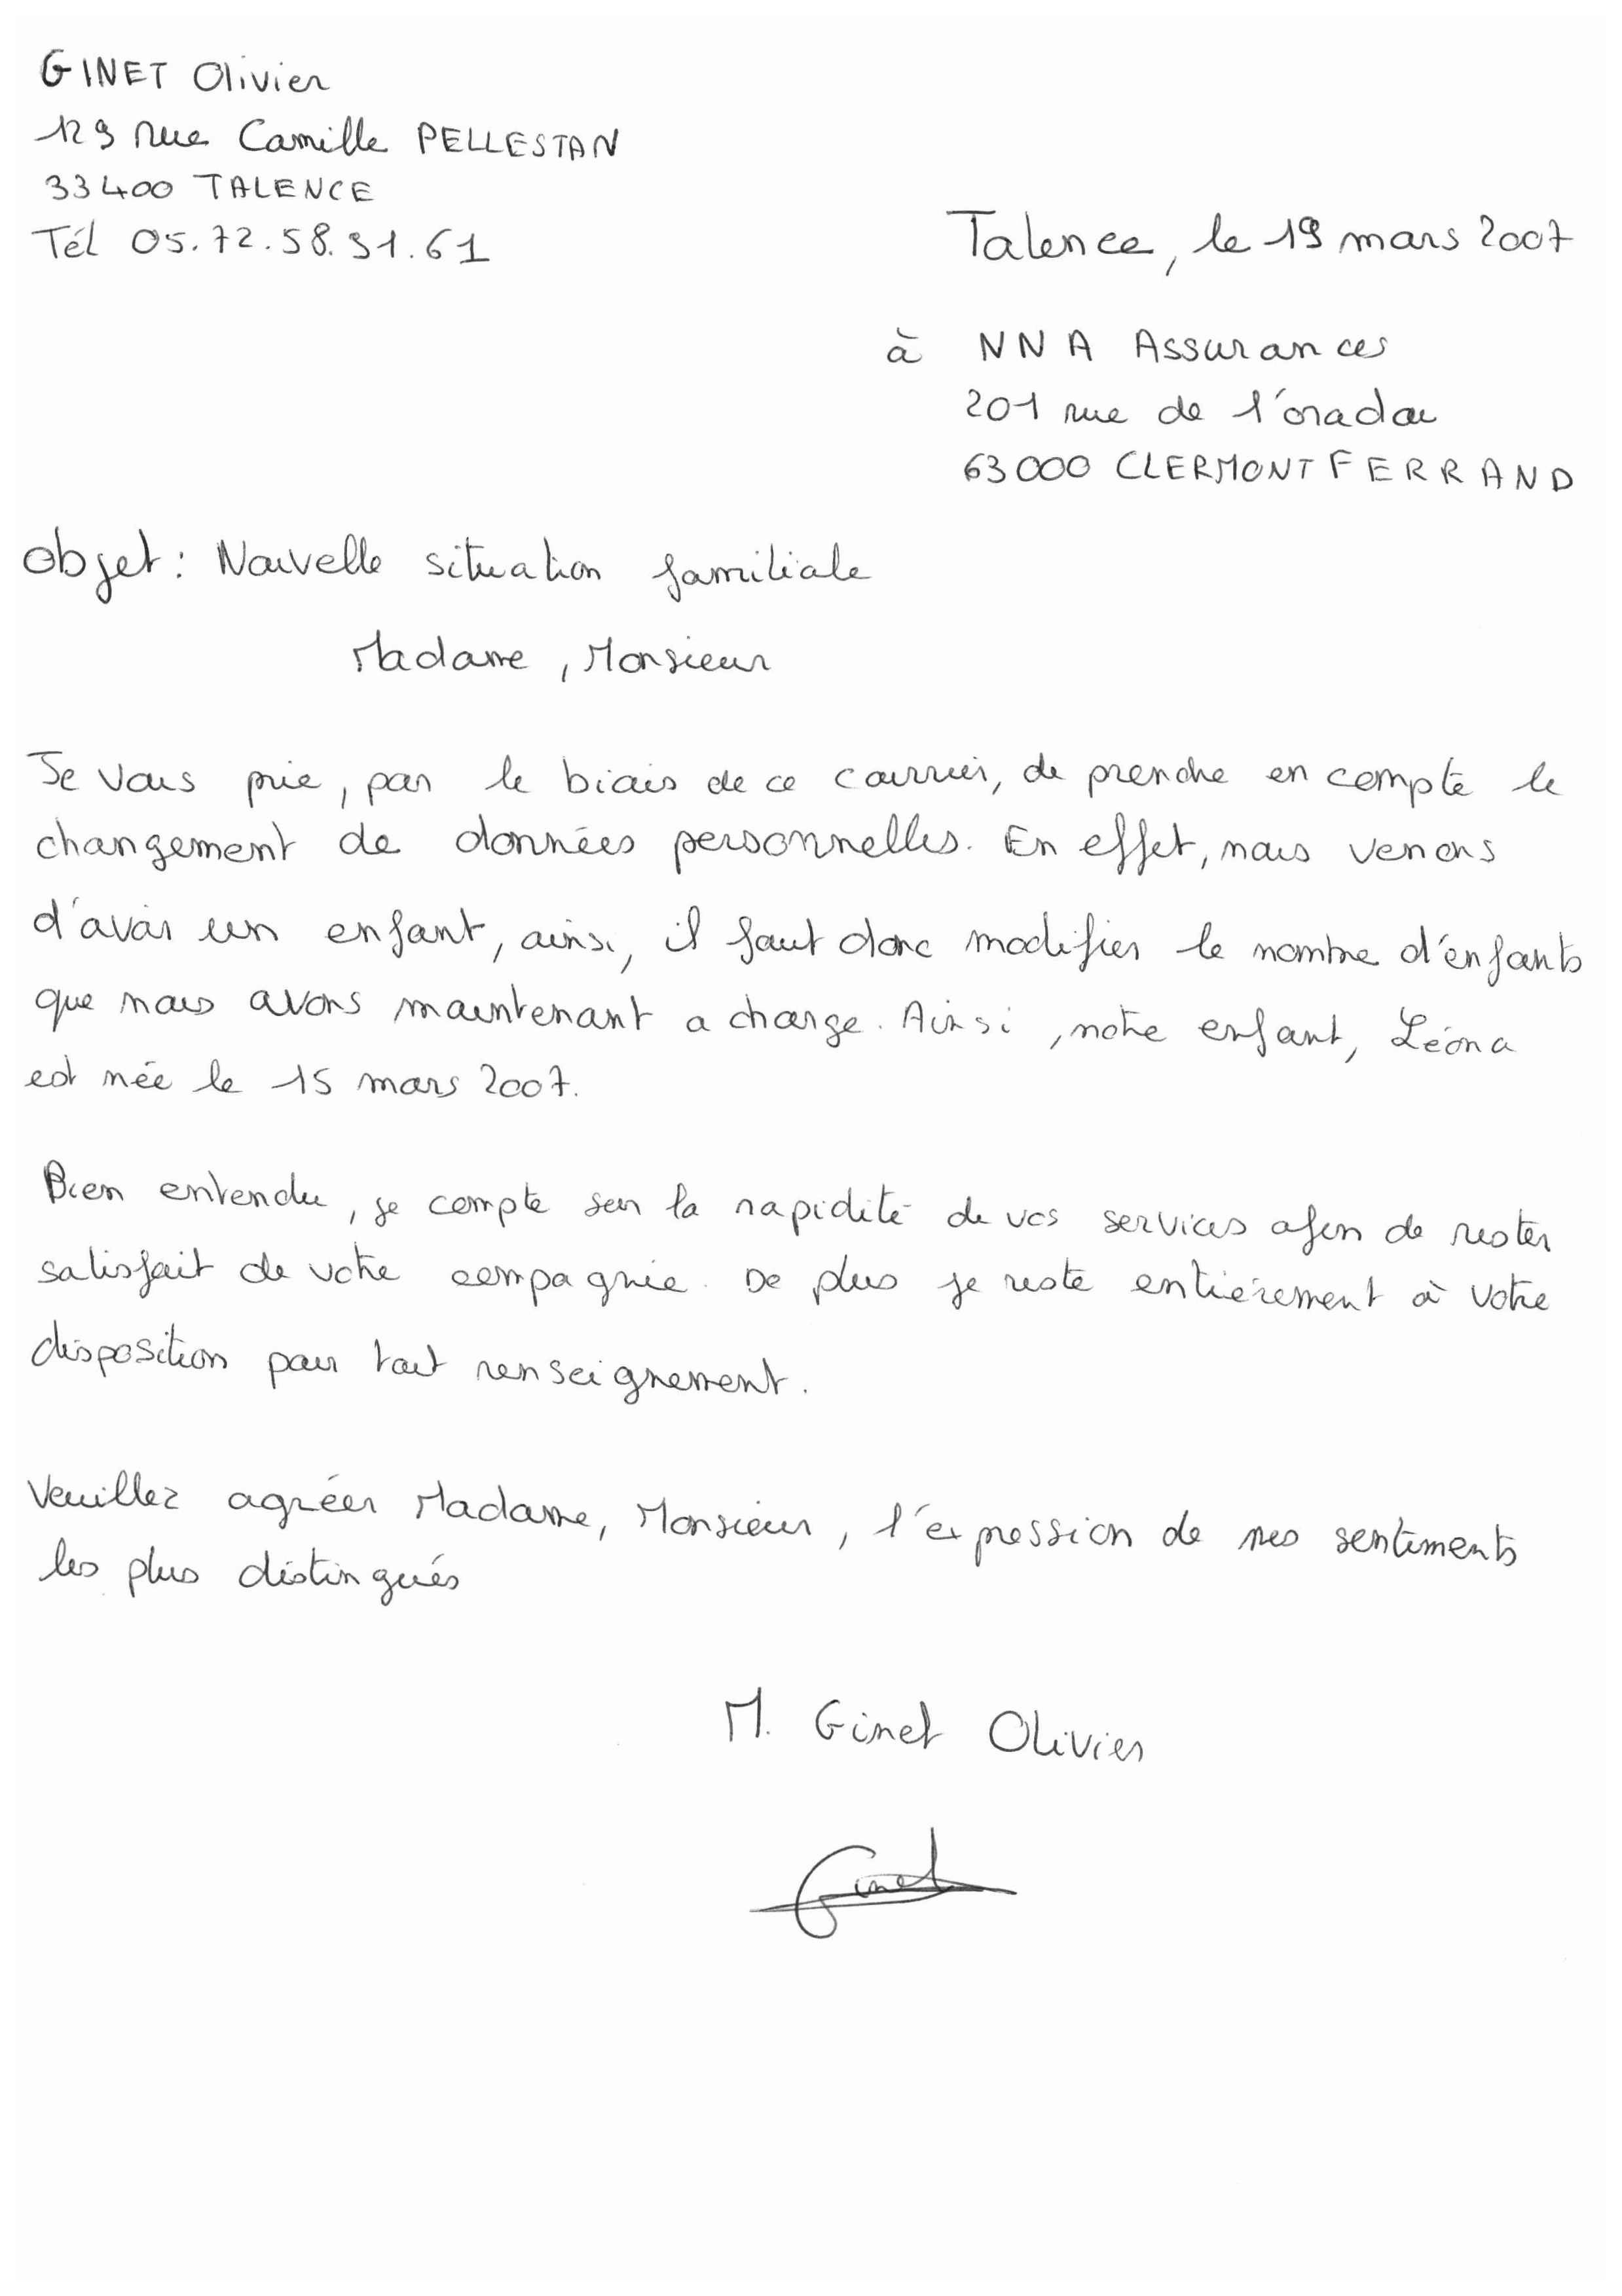 GINET Olivier
129 rue Camille PELLESTAN
33400 TALENCE
Tél 05.72.58.91.61
Talence, le 19 mars 2007
à NNA Assurances
201 rue de l'oradou
63000 CLERMONT FERRAND
Objet : Nouvelle situation familiale
Madame, Monsieur
Je vous prie, par le biais de ce courrier, de prendre en compte le
changement de données personnelles. En effet, nous venons
d'avoir un enfant, ainsi, il faut donc modifier le nombre d'enfants
que nous avons maintenant a charge. Ainsi, notre enfant, Léona
est née le 15 mars 2007.
Bien entendu, je compte sur la rapidité de vos services afin de rester
satisfait de votre compagnie. De plus je reste entièrement à votre
disposition pour tout renseignement.
Veuillez agréer Madame, Monsieur, l'expression de mes sentiments
les plus distingués
M. Ginet Olivier
Ginet